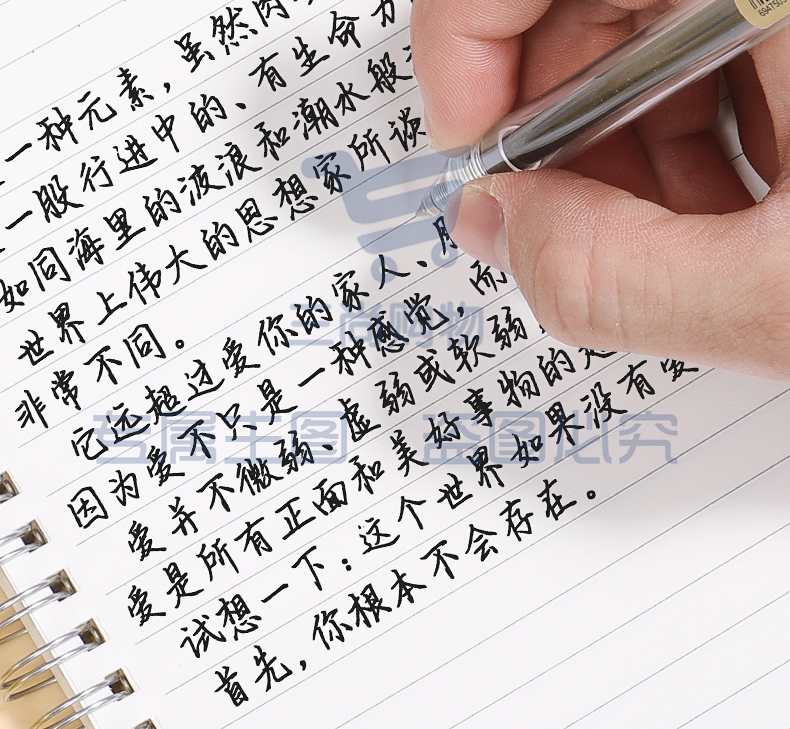 一种元素，虽然肉
一股行进中的、有生命力
如同海里的波浪和潮水般
世界上伟大的思想家所谈
非常不同。
它远超过爱你的家人、
因为爱不只是一种感觉，而
爱并不微弱、虚弱或软弱
爱是所有正面和美好事物的
试想一下：这个世界如果没有爱
首先，你根本不会存在。
三尚购物
专属主图 盗图必究